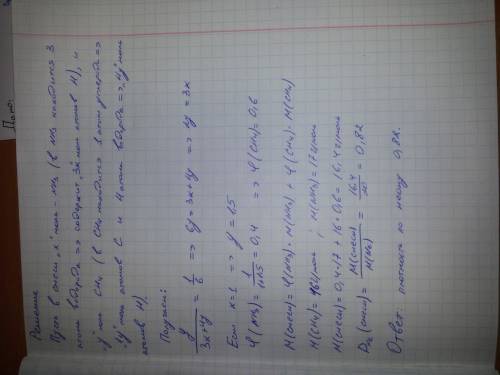 Решение
Пусть в смеси "x" моль - NH₃ (в NH₃ находится 3
атома водорода => содержит "3x" моль атомов H), и
"y" моль CH₄ (в CH₄ находится 1 атом углерода =>
"y" моль атомов C и 4 атома водорода => "4y" моль
атомов H).
Получаем:
y/(3x+4y) = 1/6 => 6y = 3x+4y => 2y = 3x
Если x=1 => y = 1,5
φ(NH₃) = 1/(1+1,5) = 0,4 => φ(CH₄) = 0,6
M(смеси) = φ(NH₃)·M(NH₃) + φ(CH₄)·M(CH₄)
M(CH₄) = 16 г/моль ; M(NH₃) = 17 г/моль
M(смеси) = 0,4·17 + 16·0,6 = 16,4 г/моль
(смеси) = M(смеси)/M(Ne) = 16,4/20 = 0,82
Ответ: плотность по неону 0,82.